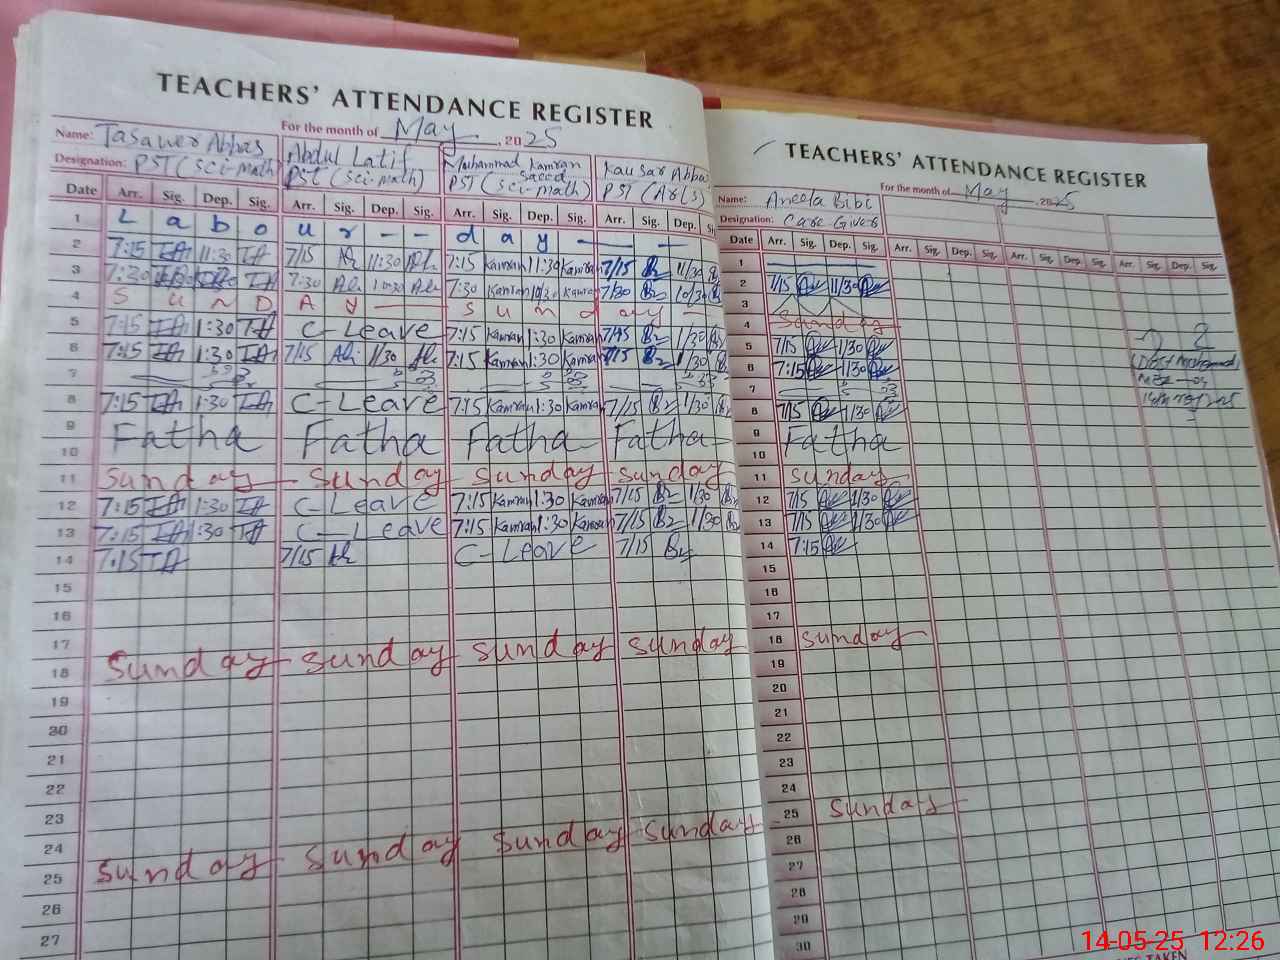 TEACHERS' ATTENDANCE REGISTER
For the month of May, 2025
Name: Tasawer Abbas Abdul Latif Muhammad Kamran Saeed Kausar Abbas
Designation: PST (Sci-math) PST (Sci-math) PST (Sci-math) PST (Arts)
Date Arr. Sig. Dep. Sig. Arr. Sig. Dep. Sig. Arr. Sig. Dep. Sig. Arr. Sig. Dep. Si
1 L a b o u r - - d a y
2 7:15 11:30 7/15 11/30 7:15 Kamran 11:30 Kamran 7/15 11/30
3 7:30 7:30 7:30 Kamran 10/30 Kamran 7/30 10/30
4 S u n D A y S u n d a y
5 7:15 1:30 C-Leave 7:15 Kamran 1:30 Kamran 7/15 1/30
6 7:15 1:30 7/15 1/30 7:15 Kamran 1:30 Kamran 7/15 1/30
7
8 7:15 1:30 C-Leave 7:15 Kamran 1:30 Kamran 7/15 1/30
9 Fatha Fatha Fatha Fatha
10
11 Sunday Sunday Sunday Sunday
12 7:15 1:30 C-Leave 7:15 Kamran 1:30 Kamran 7/15 1/30
13 7:15 1:30 C-Leave 7:15 Kamran 1:30 Kamran 7/15 1/30
14 7:15 7/15 C-Leave 7/15
15
16
17
18 Sunday Sunday Sunday Sunday
19
20
21
22
23
24
25 Sunday Sunday Sunday Sunday
26
27
TEACHERS' ATTENDANCE REGISTER
For the month of May, 2025
Name: Aneela Bibi
Designation: Care Giver
Date Arr. Sig. Dep. Sig. Arr. Sig. Dep. Sig. Arr. Sig. Dep. Sig. Arr. Sig. Dep. Sig.
1
2 7/15 11/30
3
4 Sunday
5 7/15 1/30
6 7:15 1/30
7
8 7/15 1/30
9 Fatha
10
11 Sunday
12 7/15 1/30
13 7/15 1/30
14 7:15
15
16
17
18 Sunday
19
20
21
22
23
24
25 Sunday
26
27
28
29
30
14-05-25 12:26